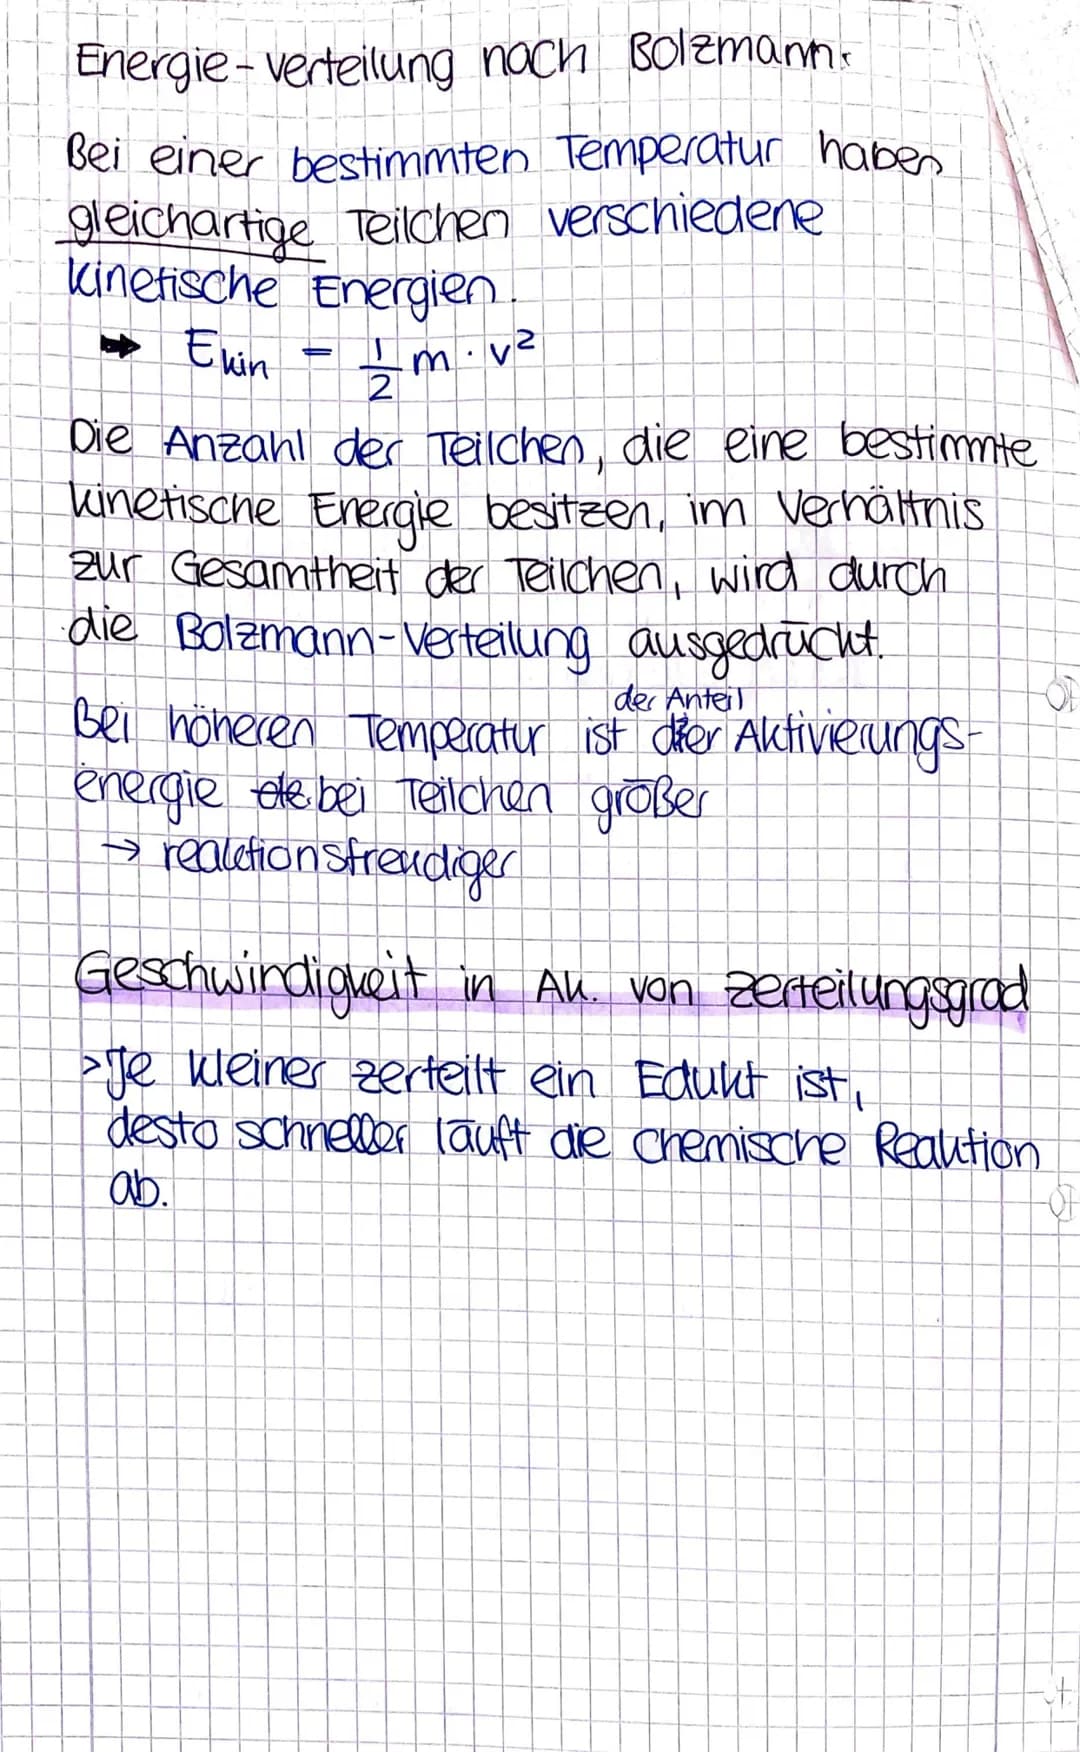 Energie-verteilung nach Bolzmann.
Bei einer bestimmten Temperatur haben
gleichartige Teilchen verschiedene
kinetische Energien.
➡ Ekin = 1/2 m · v²
Die Anzahl der Teilchen, die eine bestimmte
kinetische Energie besitzen, im Verhältnis
zur Gesamtheit der Teilchen, wird durch
die Bolzmann-Verteilung ausgedrückt.
der Anteil
Bei höheren Temperatur ist der Aktivierungs-
energie bei Teilchen größer
→ reaktionsfreudiger
Geschwindigkeit in Ak. von Zerteilungsgrad
>Je kleiner zerteilt ein Edukt ist,
desto schneller läuft die chemische Reaktion
ab.